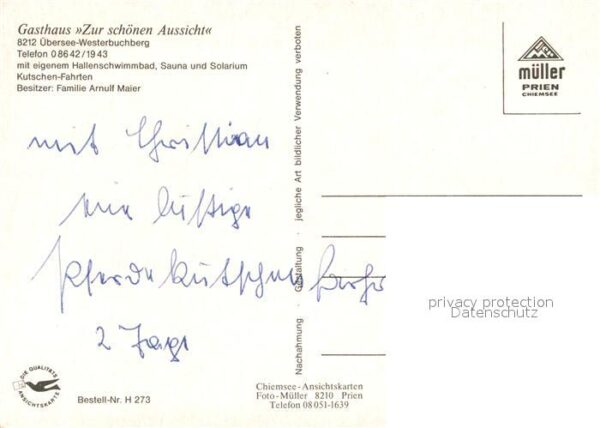 Gasthaus »Zur schönen Aussicht«
8212 Übersee-Westerbuchberg
Telefon 0 86 42 / 19 43
mit eigenem Hallenschwimmbad, Sauna und Solarium
Kutschen-Fahrten
Besitzer: Familie Arnulf Maier
mit Christian
eine lustige
Pferdekutschenfahrt
2 Tage
Nachahmung · Gestaltung · jegliche Art bildlicher Verwendung verboten
müller
PRIEN
CHIEMSEE
privacy protection
Datenschutz
DIE QUALITÄTS
ANSICHTSKARTE
Bestell-Nr. H 273
Chiemsee-Ansichtskarten
Foto-Müller 8210 Prien
Telefon 08 051-1639